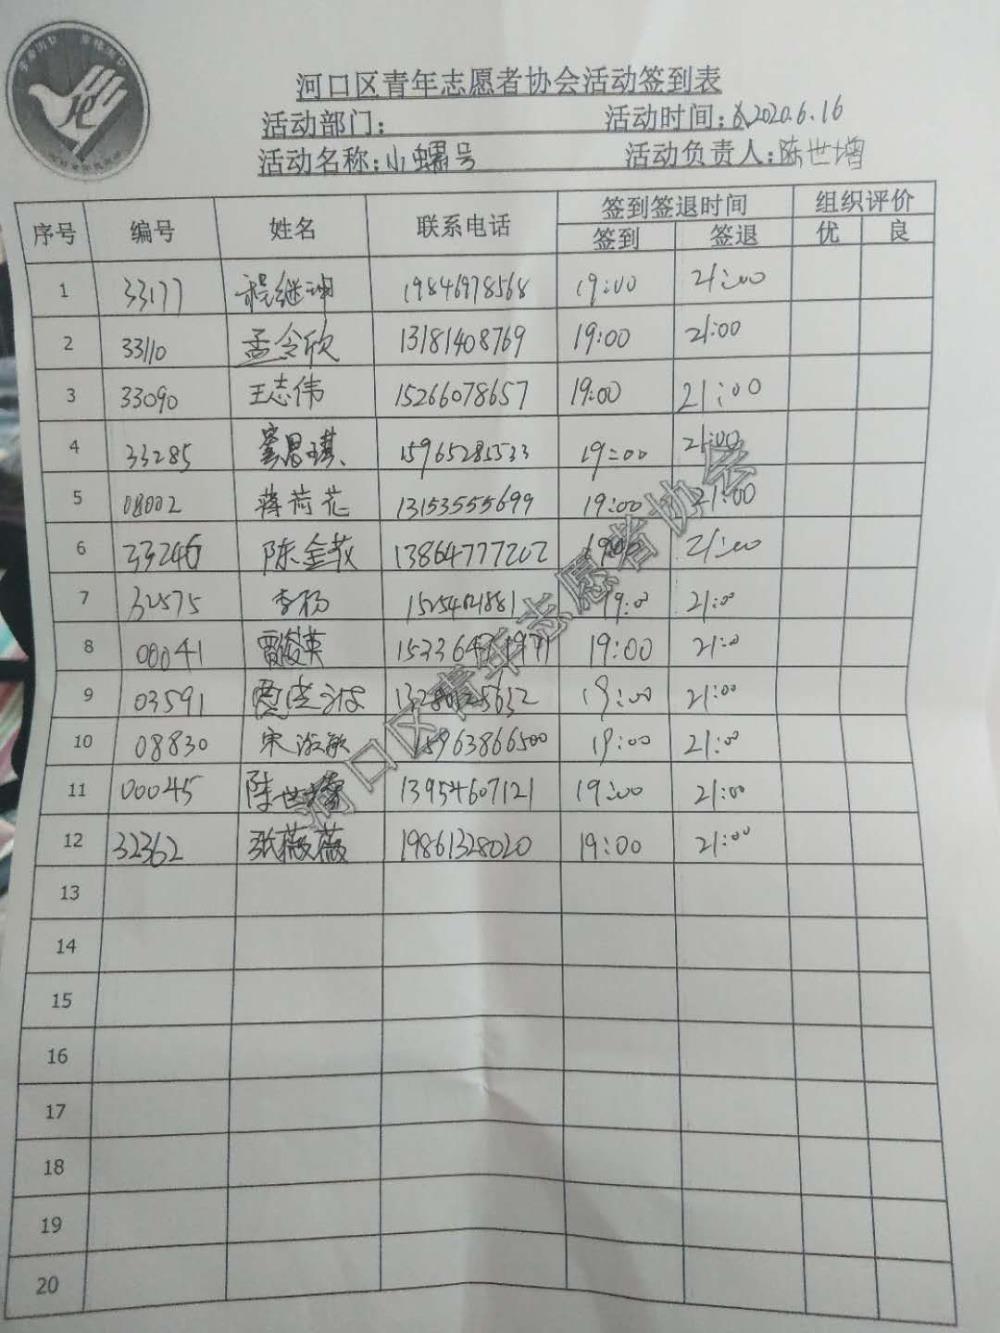 河口区青年志愿者协会活动签到表
活动部门: 活动时间: 2020.6.16
活动名称:小螺号 活动负责人:陈世增
序号 编号 姓名 联系电话 签到签退时间 组织评价
签到 签退 优 良
1 33177 程继坤 19846978568 19:00 21:00
2 33110 孟令欣 13181408769 19:00 21:00
3 33090 王志伟 15266078657 19:00 21:00
4 33285 15965285533 19:00 21:00
5 08002 蒋荷花 13153555699 19:00 21:00
6 33246 陈金 13864777202 19:00 21:00
7 32575 李杨 19:0 21:0
8 00041 雷俊英 19:00 21:0
9 03591 19:00 21:00
10 08830 宋淑敏 15963866500 19:00 21:00
11 00045 陈世增 13954607121 19:00 21:00
12 32362 张薇薇 19861328020 19:00 21:00
13
14
15
16
17
18
19
20
河口区青年志愿者协会